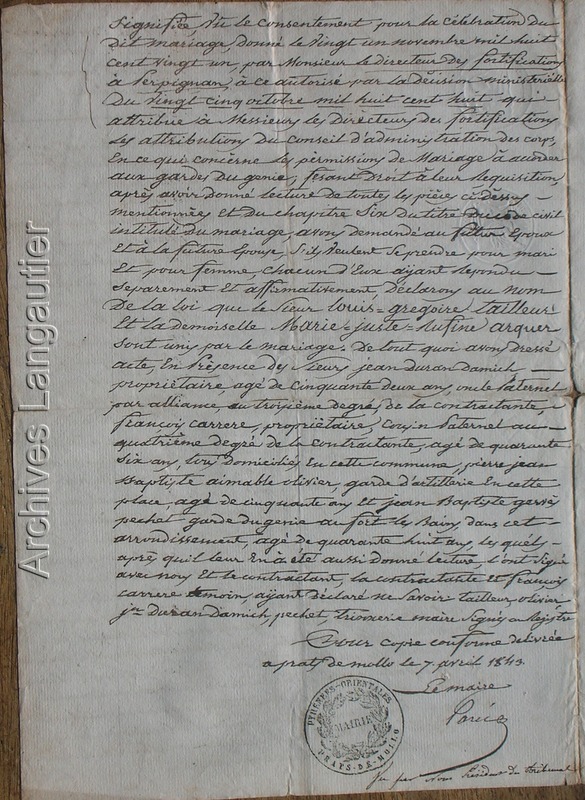 Signifiée, Vu le consentement pour la célébration du
dit mariage, donné le vingt un novembre mil huit
cent vingt un, par Monsieur le Directeur des fortifications
à Perpignan, à ce autorisé par la décision ministérielle
du vingt cinq octobre mil huit cent huit qui
attribue à Messieurs les Directeurs des fortifications
les attributions du Conseil d'administration des corps,
En ce qui concerne les permissions de Mariage à accorder
aux gardes du genie; fesant droit à leur requisition,
après avoir donné lecture de toutes les pièces ci-dessus
mentionnées et du chapitre Six du titre du code civil
intitulé du mariage, avons demandé au futur Epoux
Et à la future Epouse, S'ils veulent Se prendre pour mari
Et pour femme, chacun d'Eux ayant repondu
Separement Et affirmativement Déclarons au nom
De la loi que le Sieur louis-gregoire tailleur
Et la demoiselle Marie-juste-rufine arquer
Sont unis par le mariage. De tout quoi avons dressé
acte, En Présence des Sieurs jean duran Damich
propriétaire, agé de Cinquante deux ans, oncle Paternel
par alliance, au troisième degré, de la contractante,
françois carrere, propriétaire, Cousin Paternel au
quatrième degré de la contractante, agé de quarante
Six ans, tous domiciliés En cette commune, pierre jean
Baptiste aimable olivier, garde d'artillerie En cette
place, agé de cinquante ans Et jean Baptiste
pechet garde du genie au fort les Bains, dans cet
arrondissement, agé de quarante huit ans, les quels
après qu'il leur En à été aussi donné lecture, l'ont Signé
avec nous Et le contractant, la contractante et françois
carrere temoin, ayant déclaré ne Savoir. tailleur, olivier
jn duran Damich, pechet, maire Signés au Registre
Pour copie conforme délivrée
a prats de mollo le 7 avril 1843.
Le maire
PYRÉNÉES-ORIENTALES
MAIRIE
PRATS-DE-MOLLO
par Nous Président du tribunal
Archives Langautier